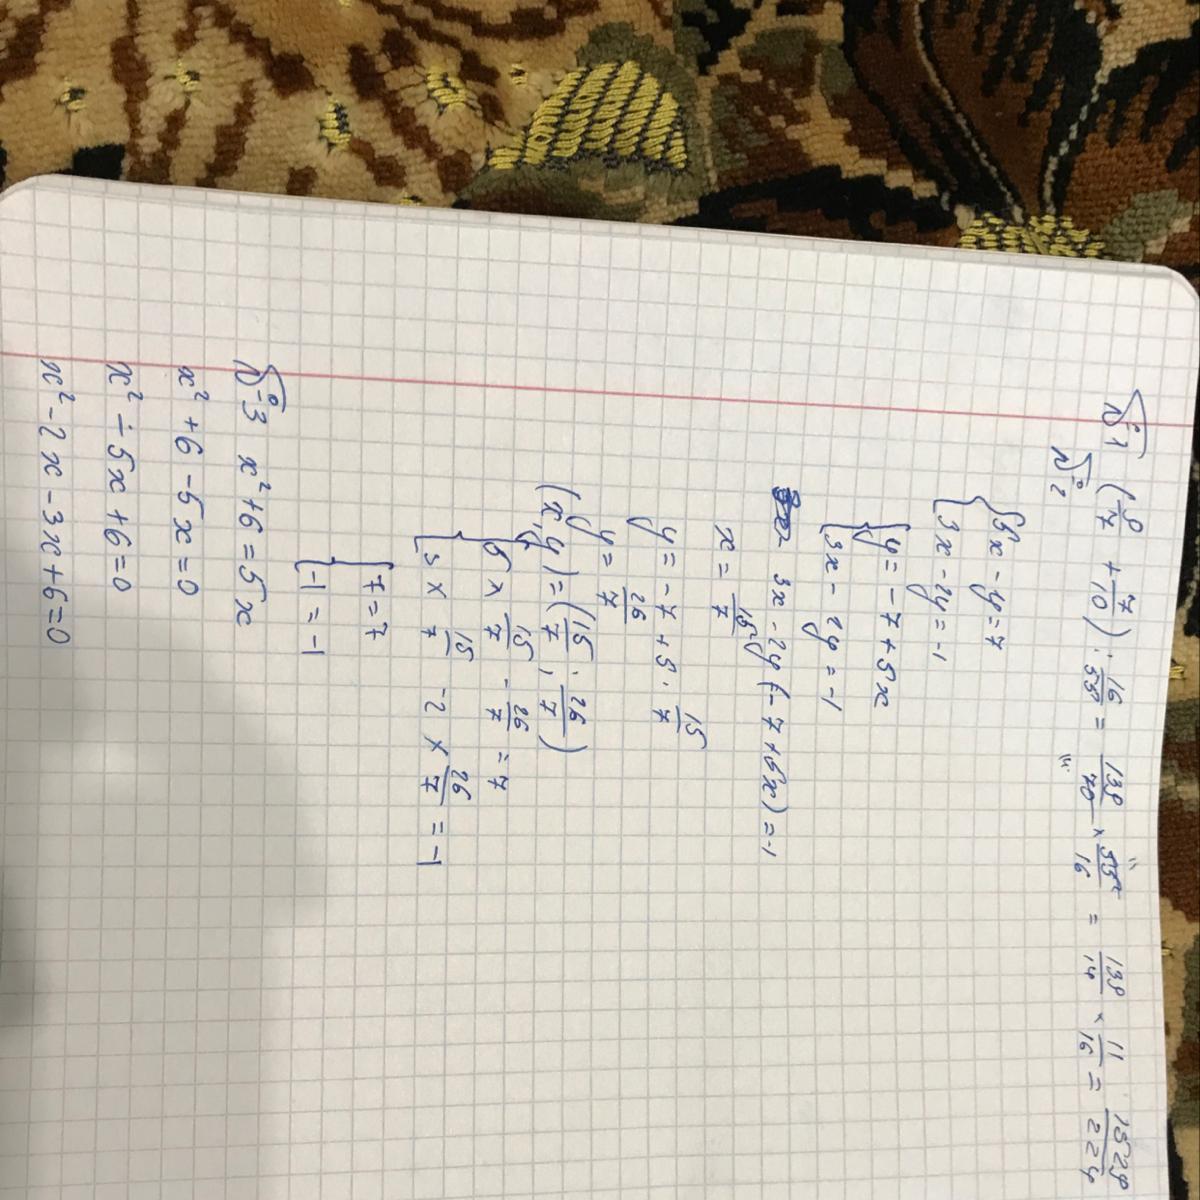 №1 (9/7 + 7/10) : 16/55 = 139/70 × 55/16 = 139/14 × 11/16 = 1529/224
№2
{5x - y = 7
{3x - 2y = -1
{y = -7 + 5x
{3x - 2y = -1
3x - 2y (-7 + 5x) = -1
x = 15/7
y = -7 + 5 · 15/7
y = 26/7
(x, y) = (15/7 ; 26/7)
{5 × 15/7 - 26/7 = 7
{3 × 15/7 - 2 × 26/7 = -1
{7 = 7
{-1 = -1
№3 x² + 6 = 5x
x² + 6 - 5x = 0
x² - 5x + 6 = 0
x² - 2x - 3x + 6 = 0